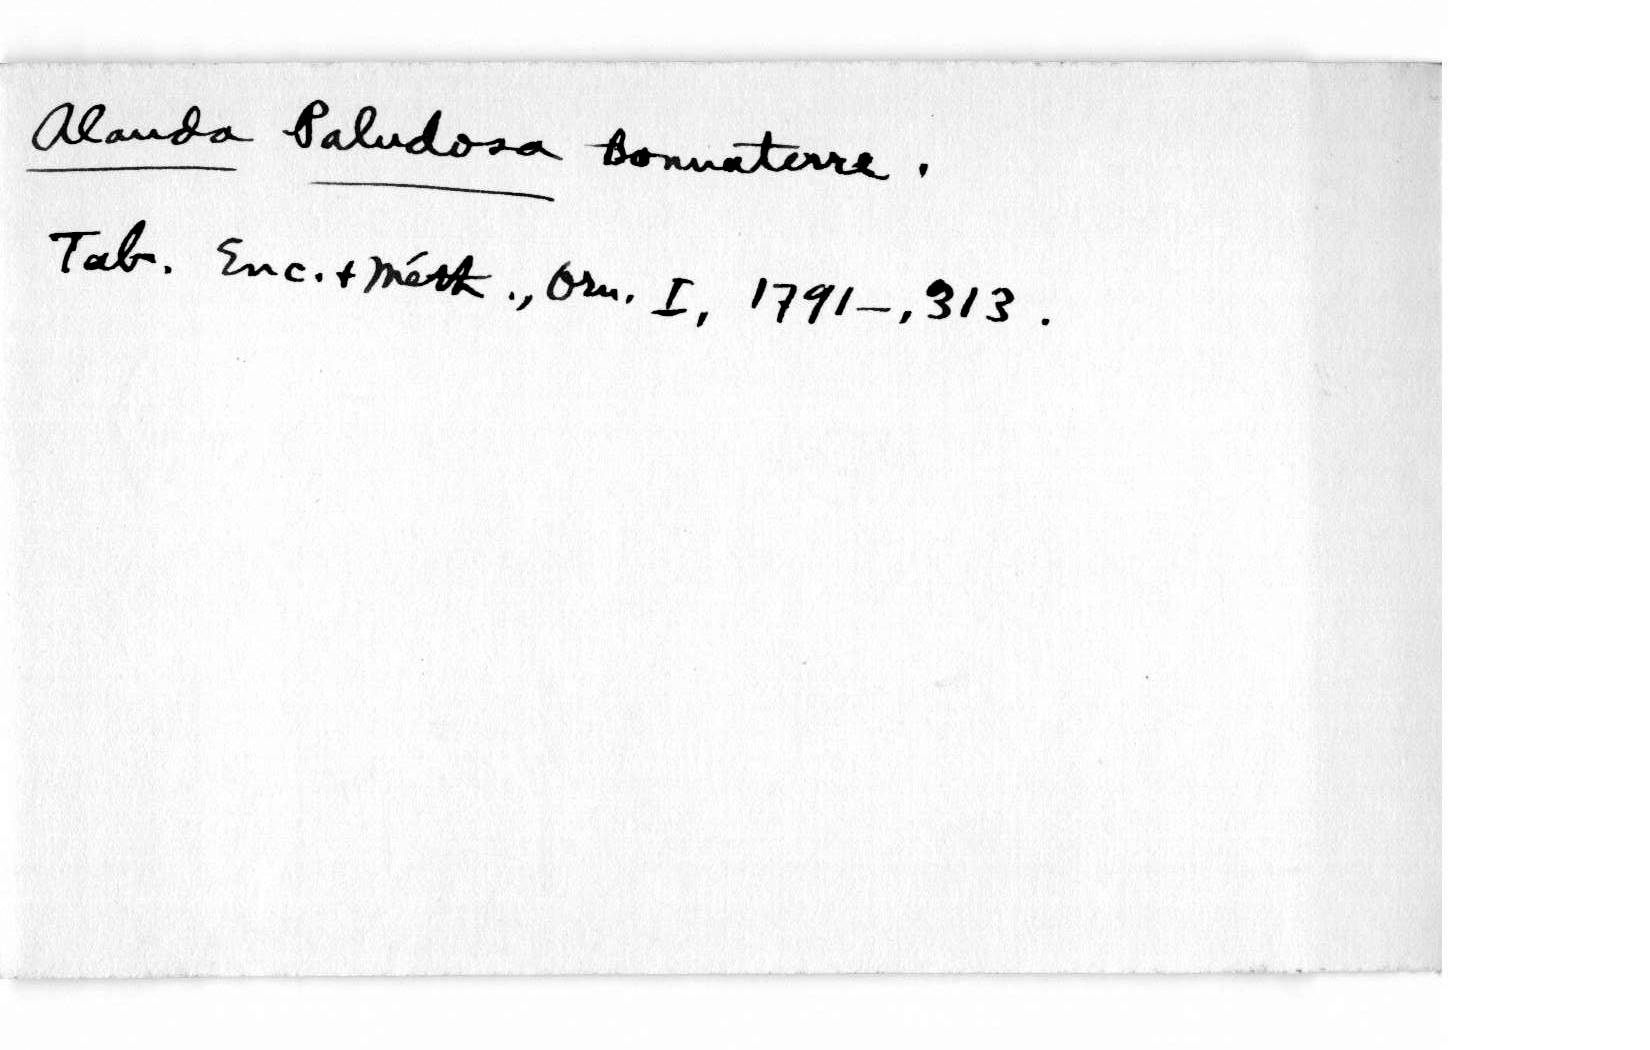 Alauda Paludosa Bonnaterre.
Tab. Enc. + Méth., Orn. I, 1791-, 313.